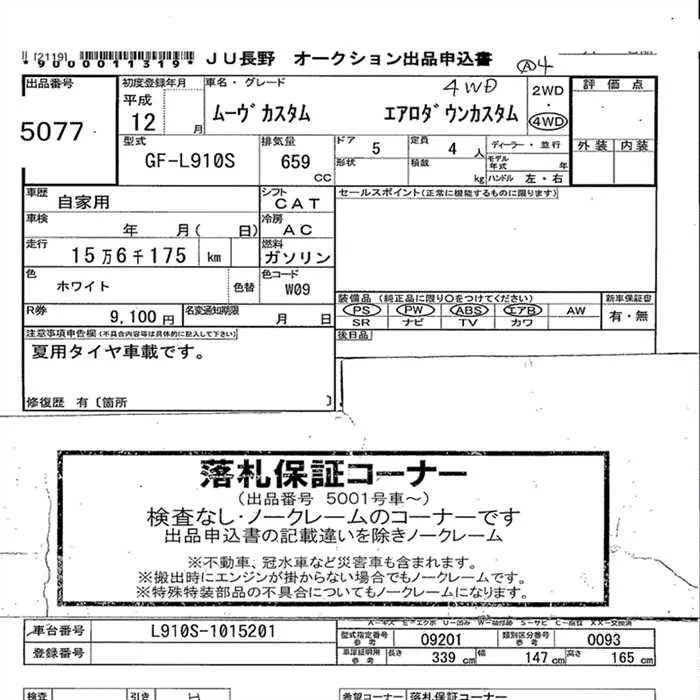 [2119]
*9000011319* ＪＵ長野 オークション出品申込書 Ⓐ4
出品番号
5077
初度登録年月
平成
12 月
車名・グレード
ムーヴカスタム エアロダウンカスタム
4WD
2WD
・
4WD
評価点
外装 内装
型式
GF-L910S
排気量
659
CC
ドア 5
定員 4 人
ディーラー・並行
形状
積載 kg
モデル年式 年
ハンドル 左・右
車歴
自家用
シフト
CAT
セールスポイント(正常に機能するものに限ります)
車検
年 月( 日)
冷房
AC
走行
15万6千175 km
燃料
ガソリン
色
ホワイト
色替
色コード
W09
装備品 (純正品に限り○をつけてください)
PS PW ABS エアB AW
SR ナビ TV カワ
新車保証書
有・無
R券
9,100 円
名変通知期限
月 日
後日品
注意事項申告欄(不具合内容等は具体的に記入して下さい)
夏用タイヤ車載です。
修復歴 有〔箇所 〕
落札保証コーナー
(出品番号 5001号車～)
検査なし・ノークレームのコーナーです
出品申込書の記載違いを除きノークレーム
※不動車、冠水車など災害車も含まれます。
※搬出時にエンジンが掛からない場合でもノークレームです。
※特殊特装部品の不具合についてもノークレームになります。
車台番号 L910S-1015201
登録番号
型式指定番号 参考 09201
類別区分番号 参考 0093
車庫証明用 参考 長さ 339 cm 幅 147 cm 高さ 165 cm
検査
引き
希望コーナー 落札保証コーナー